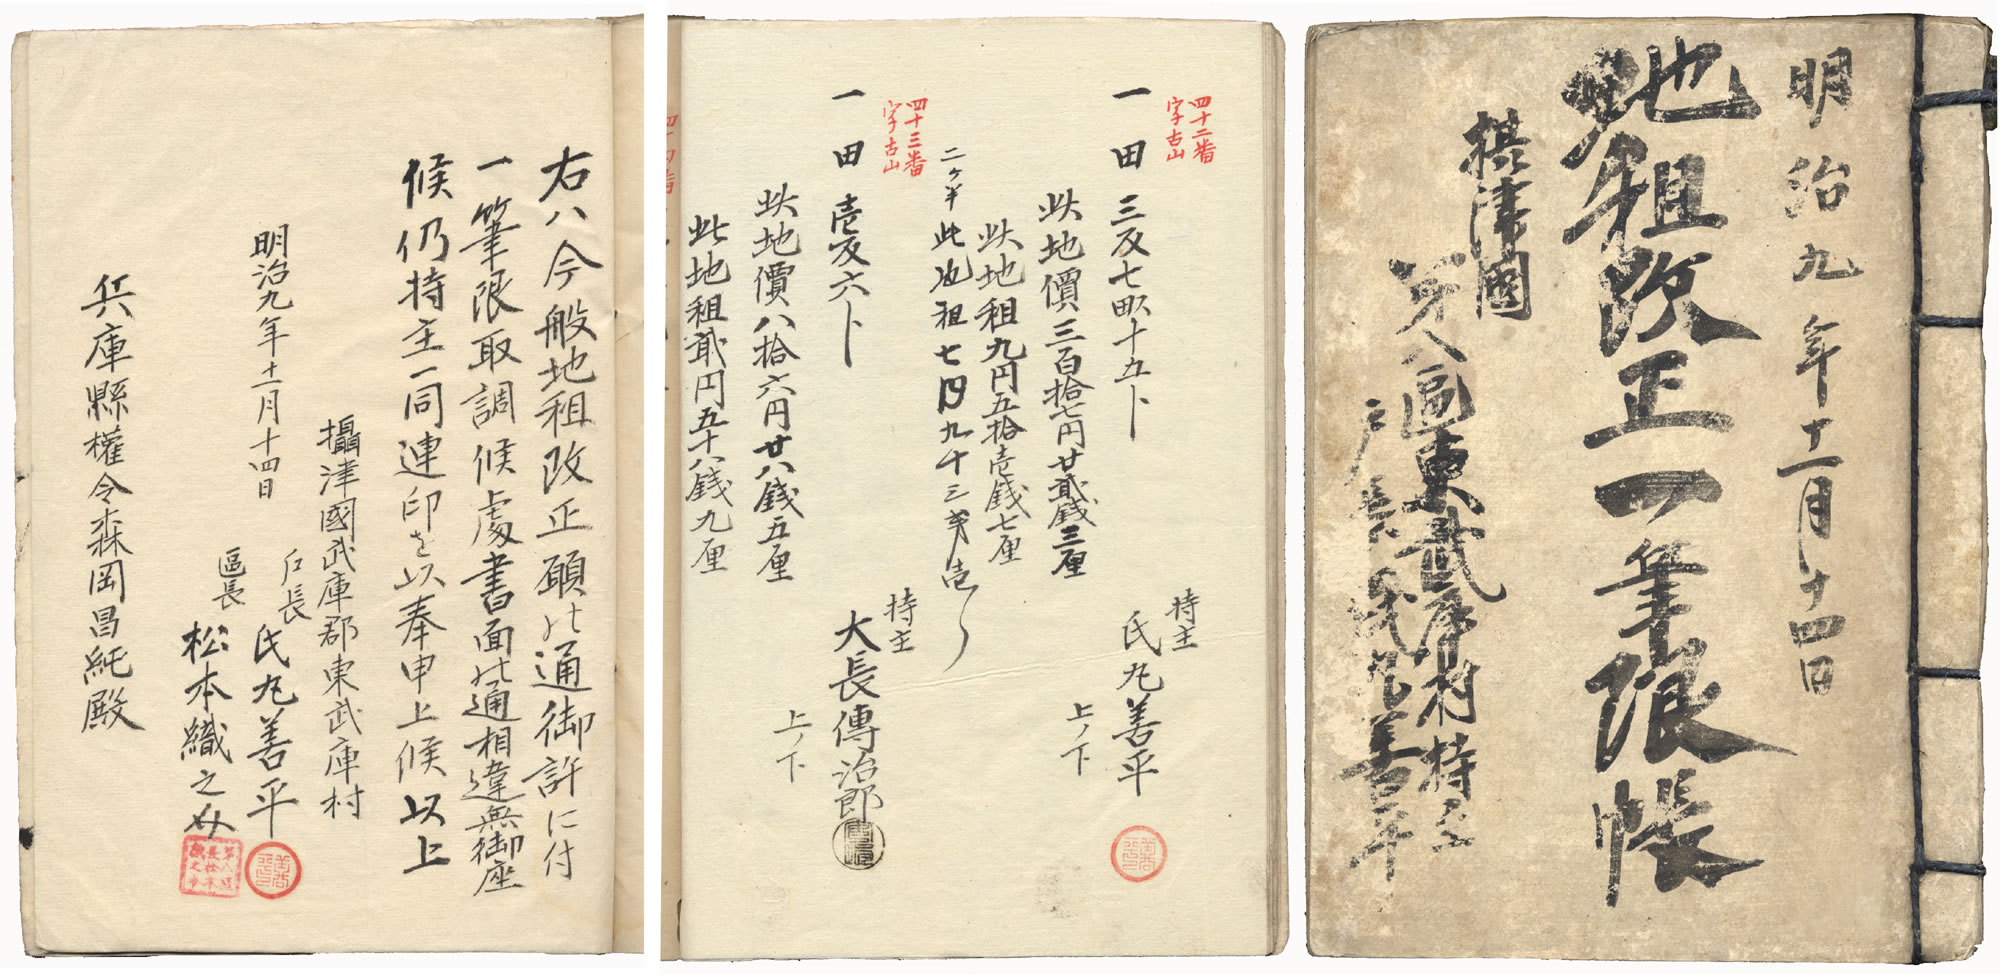 明治九年十二月十四日
地租改正一筆限帳
摂津國
第八區東武庫村持主
戸長 氏丸善平
四十二番
字古山
一田 三反七畝十五卜
此地價三百拾七円廿弐銭三厘
此地租九円五拾壱銭七厘
二ヶ半 此地租七円九十三銭壱り
持主
氏丸善平
上ノ下
四十三番
字古山
一田 壱反六卜
此地價八拾六円廿八銭五厘
此地租弐円五十八銭九厘
持主
大長傳治郎
上ノ下
右ハ今般地租改正願之通御許に付
一筆限取調候處書面之通相違無御座
候仍持主一同連印を以奉申上候以上
攝津國武庫郡東武庫村
明治九年十二月十四日
戸長 氏丸善平
區長 松本織之介
兵庫縣權令森岡昌純殿